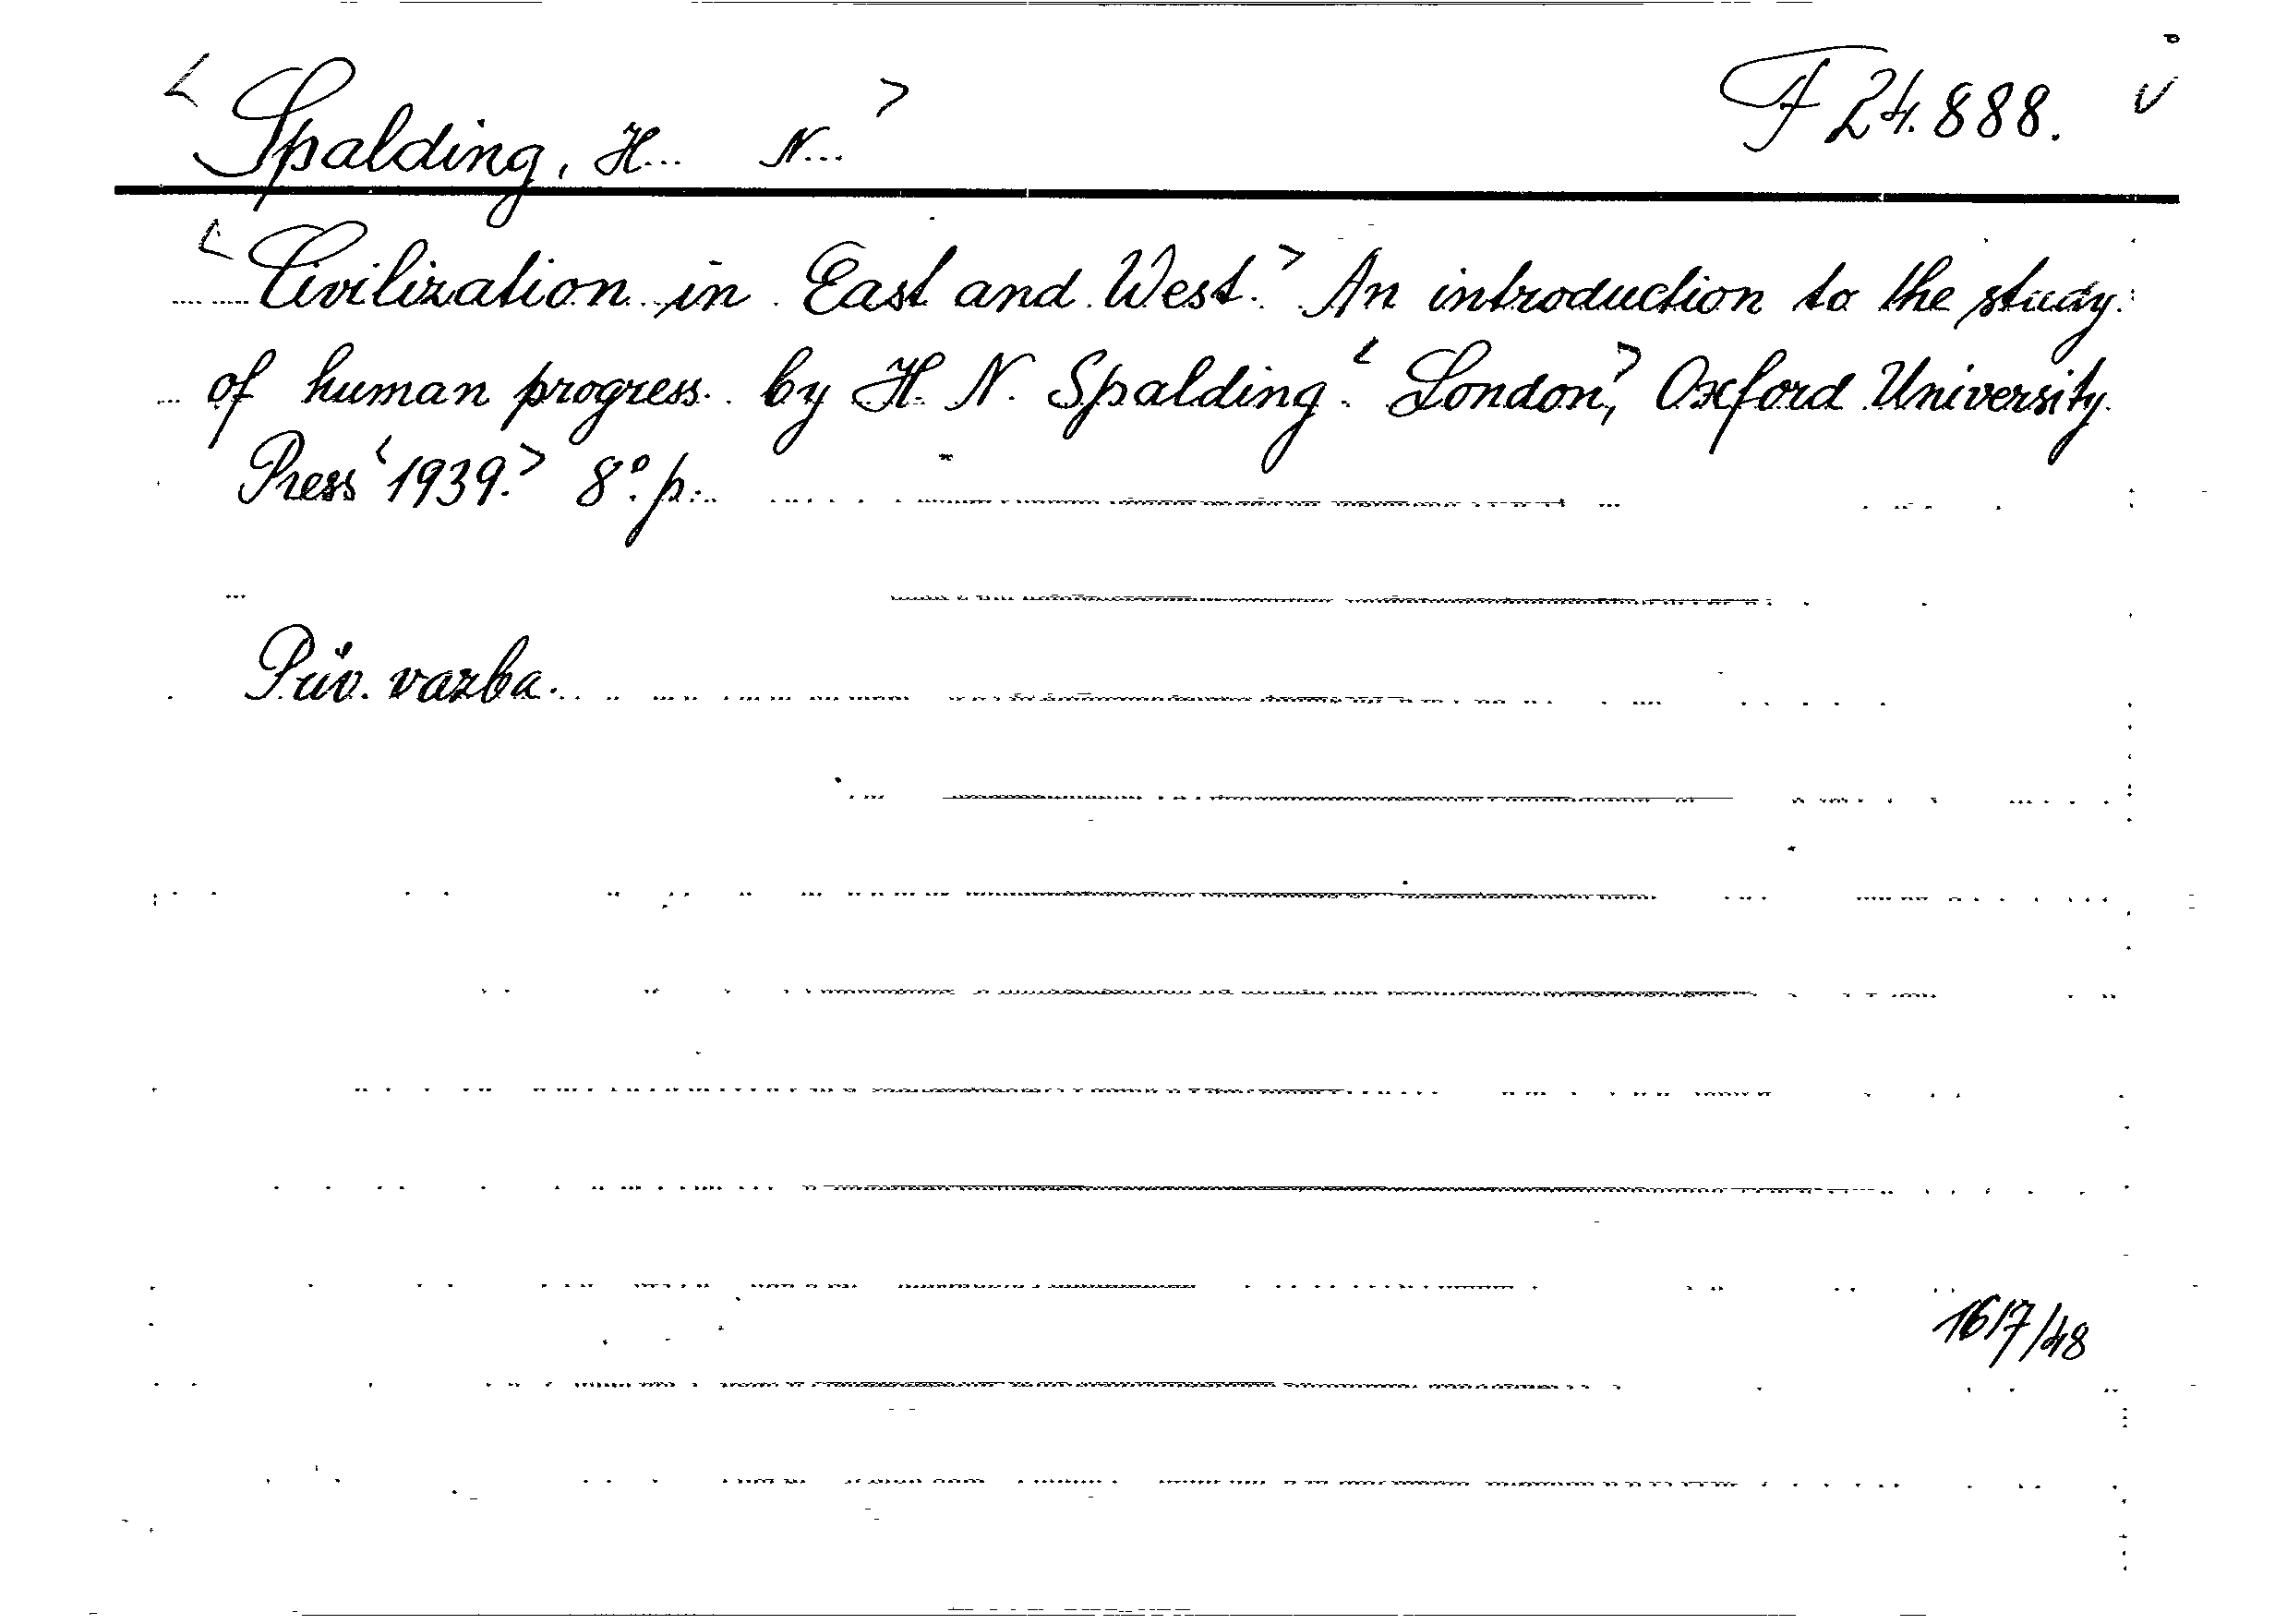 <Spalding, H... N...> F 24.888. v
<Civilization in East and West.> An introduction to the study
of human progress. by H. N. Spalding. <London,> Oxford University
Press <1939.> 8° p.
Pův. vazba.
16/7/48